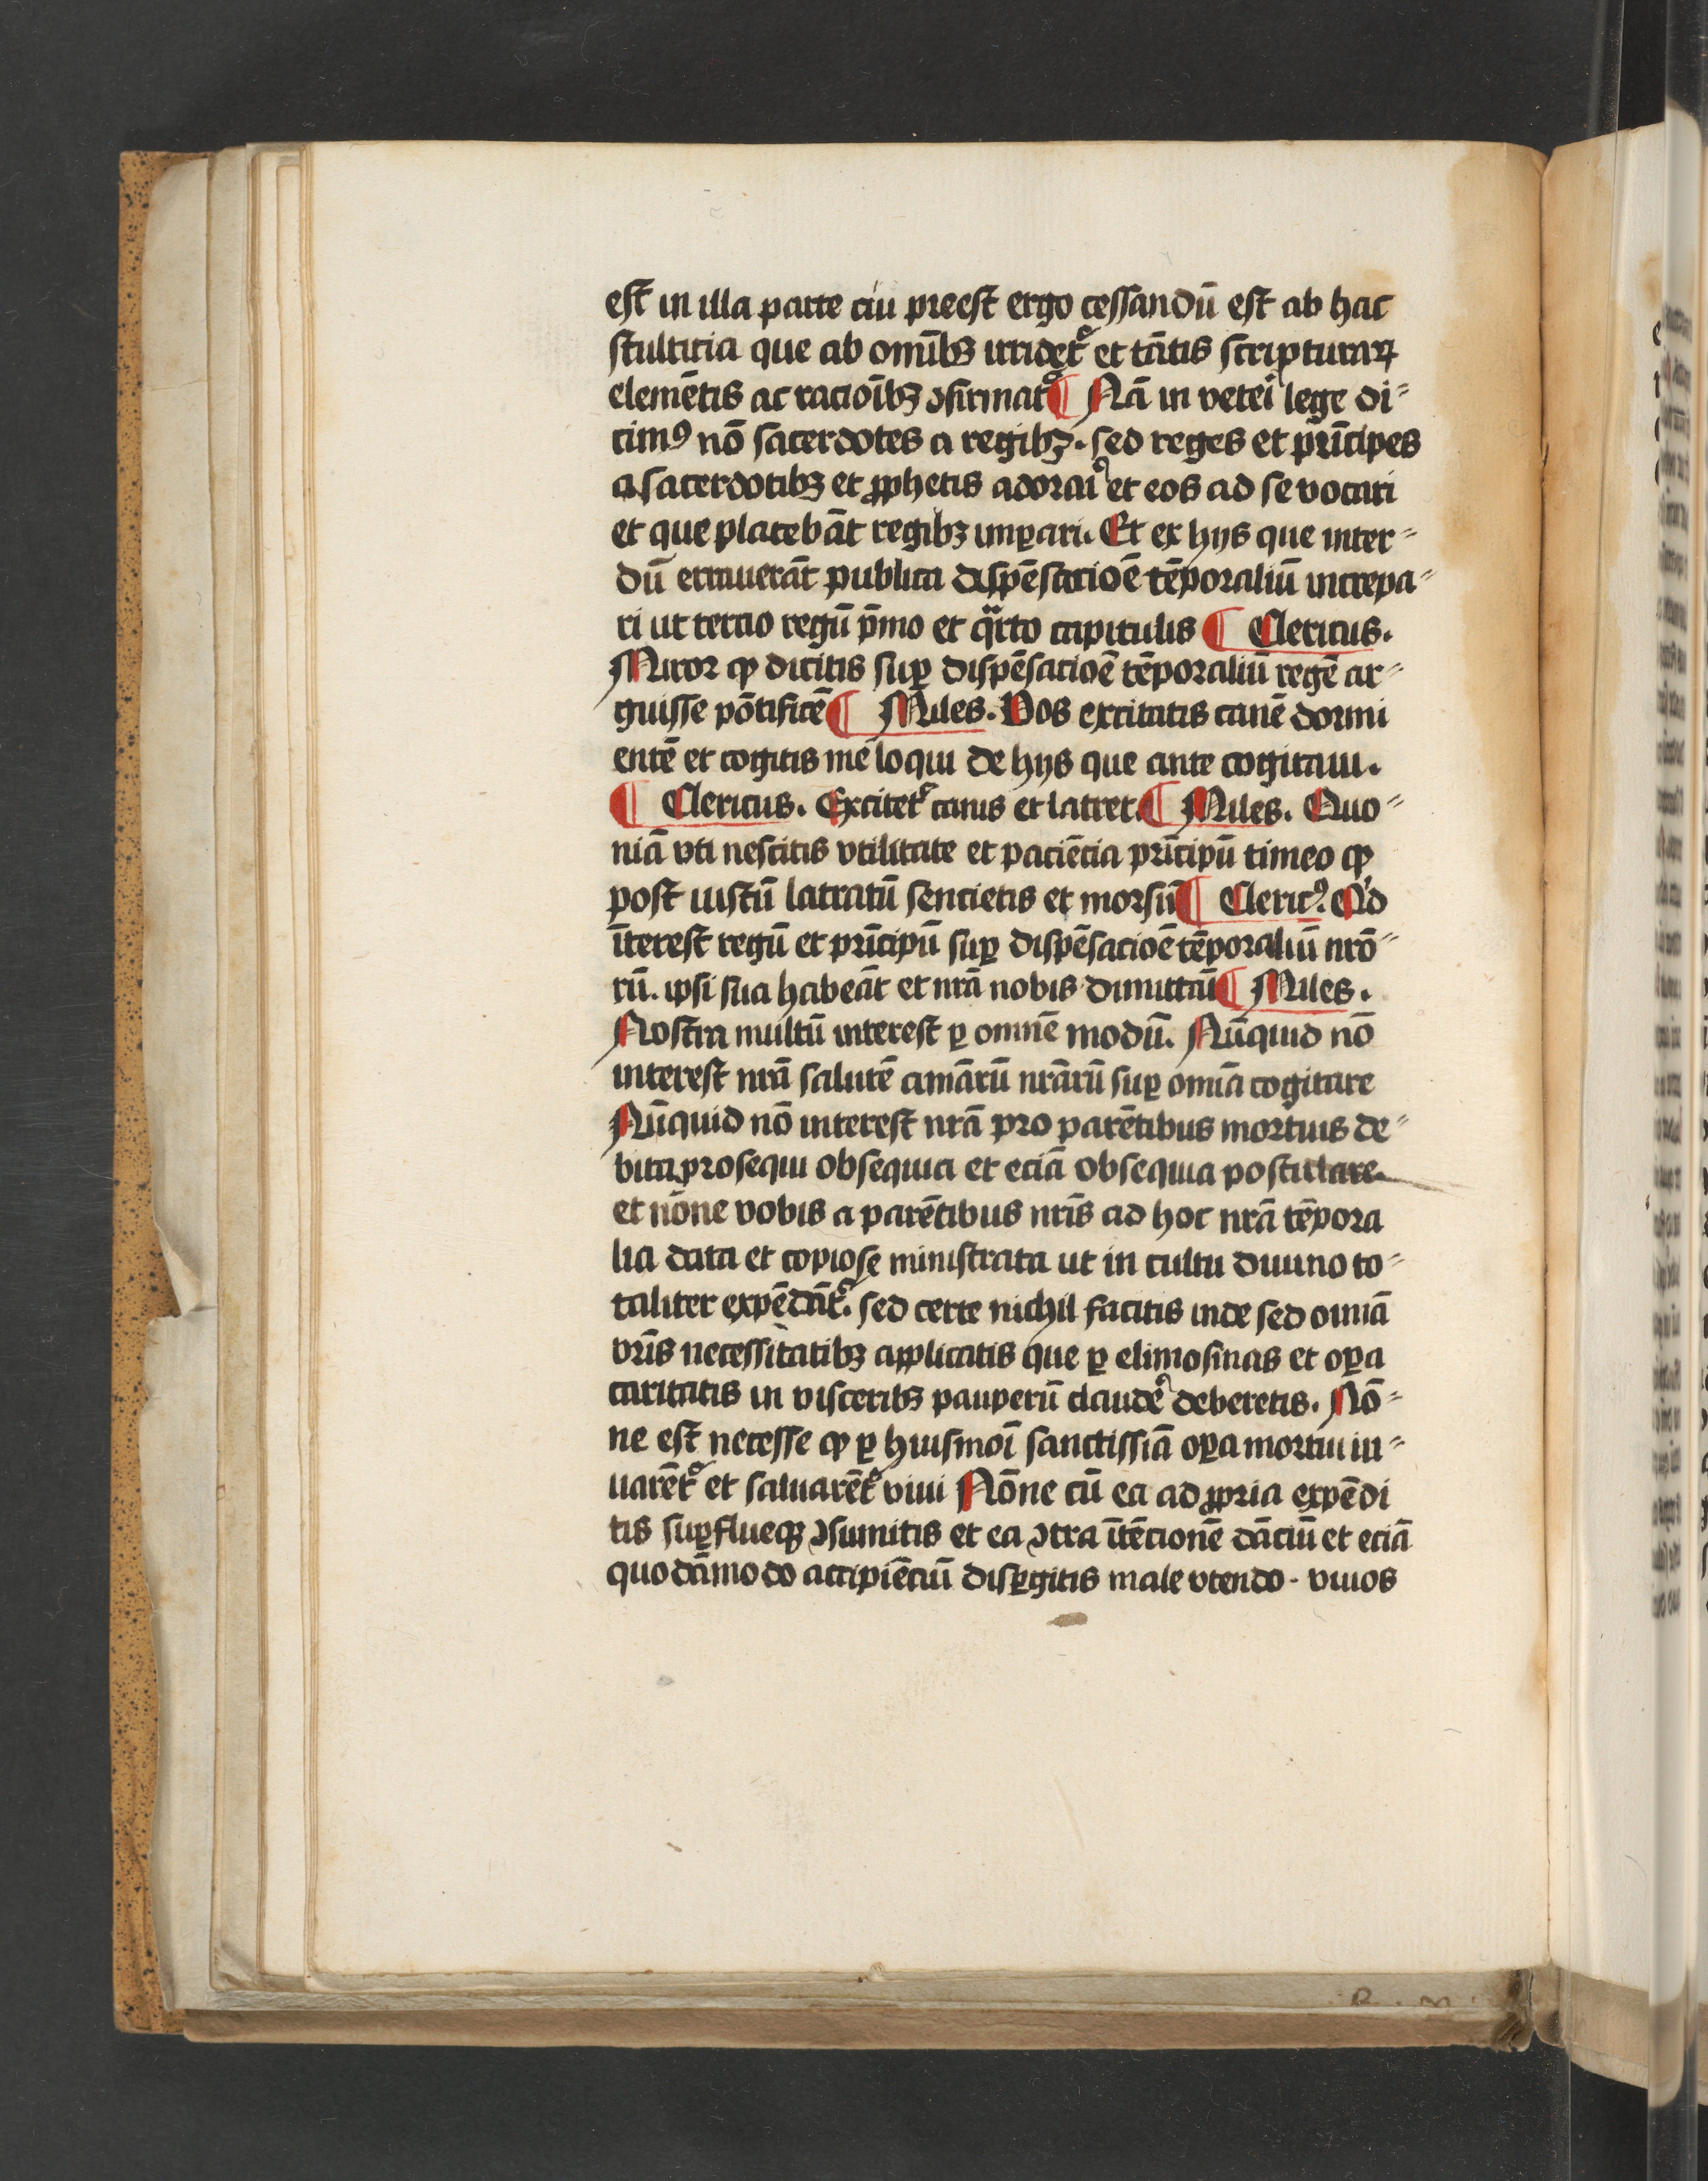 est in illa parte cui preest ergo cessandū est ab hac
stulticia que ab omībꝫ irridetᷣ et tātis scripturaꝝ
elemētis ac racioībꝫ ꝯfirmatᷣ ¶ Nā in veteri lege di⸗
cimꝰ nō sacerdotes a regibꝫ. sed reges et prīcipes
a sacerdotibꝫ et ꝓphetis adorari et eos ad se vocari
et que placebāt regibꝫ imꝑari. Et ex hijs que inter⸗
dū errauerāt publica dispēsacioē tēporaliū increpa⸗
ri ut tercio regū p̄mo et qᷓrto capitulis ¶ Clericus.
Miror ꝙ dicitis suꝑ dispēsacioē tēporaliū regē ar⸗
guisse pōtificē ¶ Miles. Vos excitatis canē dormi
entē et cogitis me loqui de hijs que ante cogitaui.
¶ Clericus. Excitetᷣ canis et latret. ¶ Miles. Quo⸗
niā vti nescitis vtilitate et paciēcia prīcipū timeo ꝙ
post iustū latratū sencietis et morsū ¶ Clericꝰ. Qͥd
īterest regū et prīcipū suꝑ dispēsacioē tēporaliū nr̄o⸗
rū. ipsi sua habeāt et nr̄a nobis dimittāt ¶ Miles.
Nostra multū interest ꝑ omnē modū. Nūquid nō
interest nr̄a salutē aīmarū nr̄arū suꝑ om̄ia cogitare
Nūquid nō interest nr̄a pro parētibus mortuis de⸗
bita prosequi obsequia et eciā obsequia postulare.
et nōne vobis a parētibus nr̄is ad hoc nr̄a tēpora
lia data et copiose ministrata ut in cultu diuino to⸗
taliter expēdātᷣ. sed certe nichil facitis inde sed om̄ia
vr̄is necessitatibꝫ applicatis que ꝑ elimosinas et oꝑa
caritatis in visceribꝫ pauperū claudē deberetis. Nō⸗
ne est necesse ꝙ ꝑ huismoī sanctissīa oꝑa mortui iu⸗
uarētᷣ et saluarētᷣ viui Nōne cū ea ad ꝓpria expēdi
tis suꝑflueqꝫ ꝯsumitis et ea ꝯtra ītēcionē dāciū et eciā
quodāmodo accipiēciū disꝑgitis male vtendo. viuos